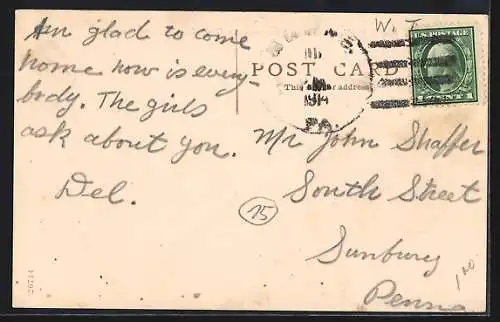 Am glad to come
home how is every-
body. The girls
ask about you.
Del.
W. T.
U.S. POSTAGE
POST CARD
This for address
1914
PA.
Mr John Shaffer
South Street
Sunbury
Penna
15
1 00
26714